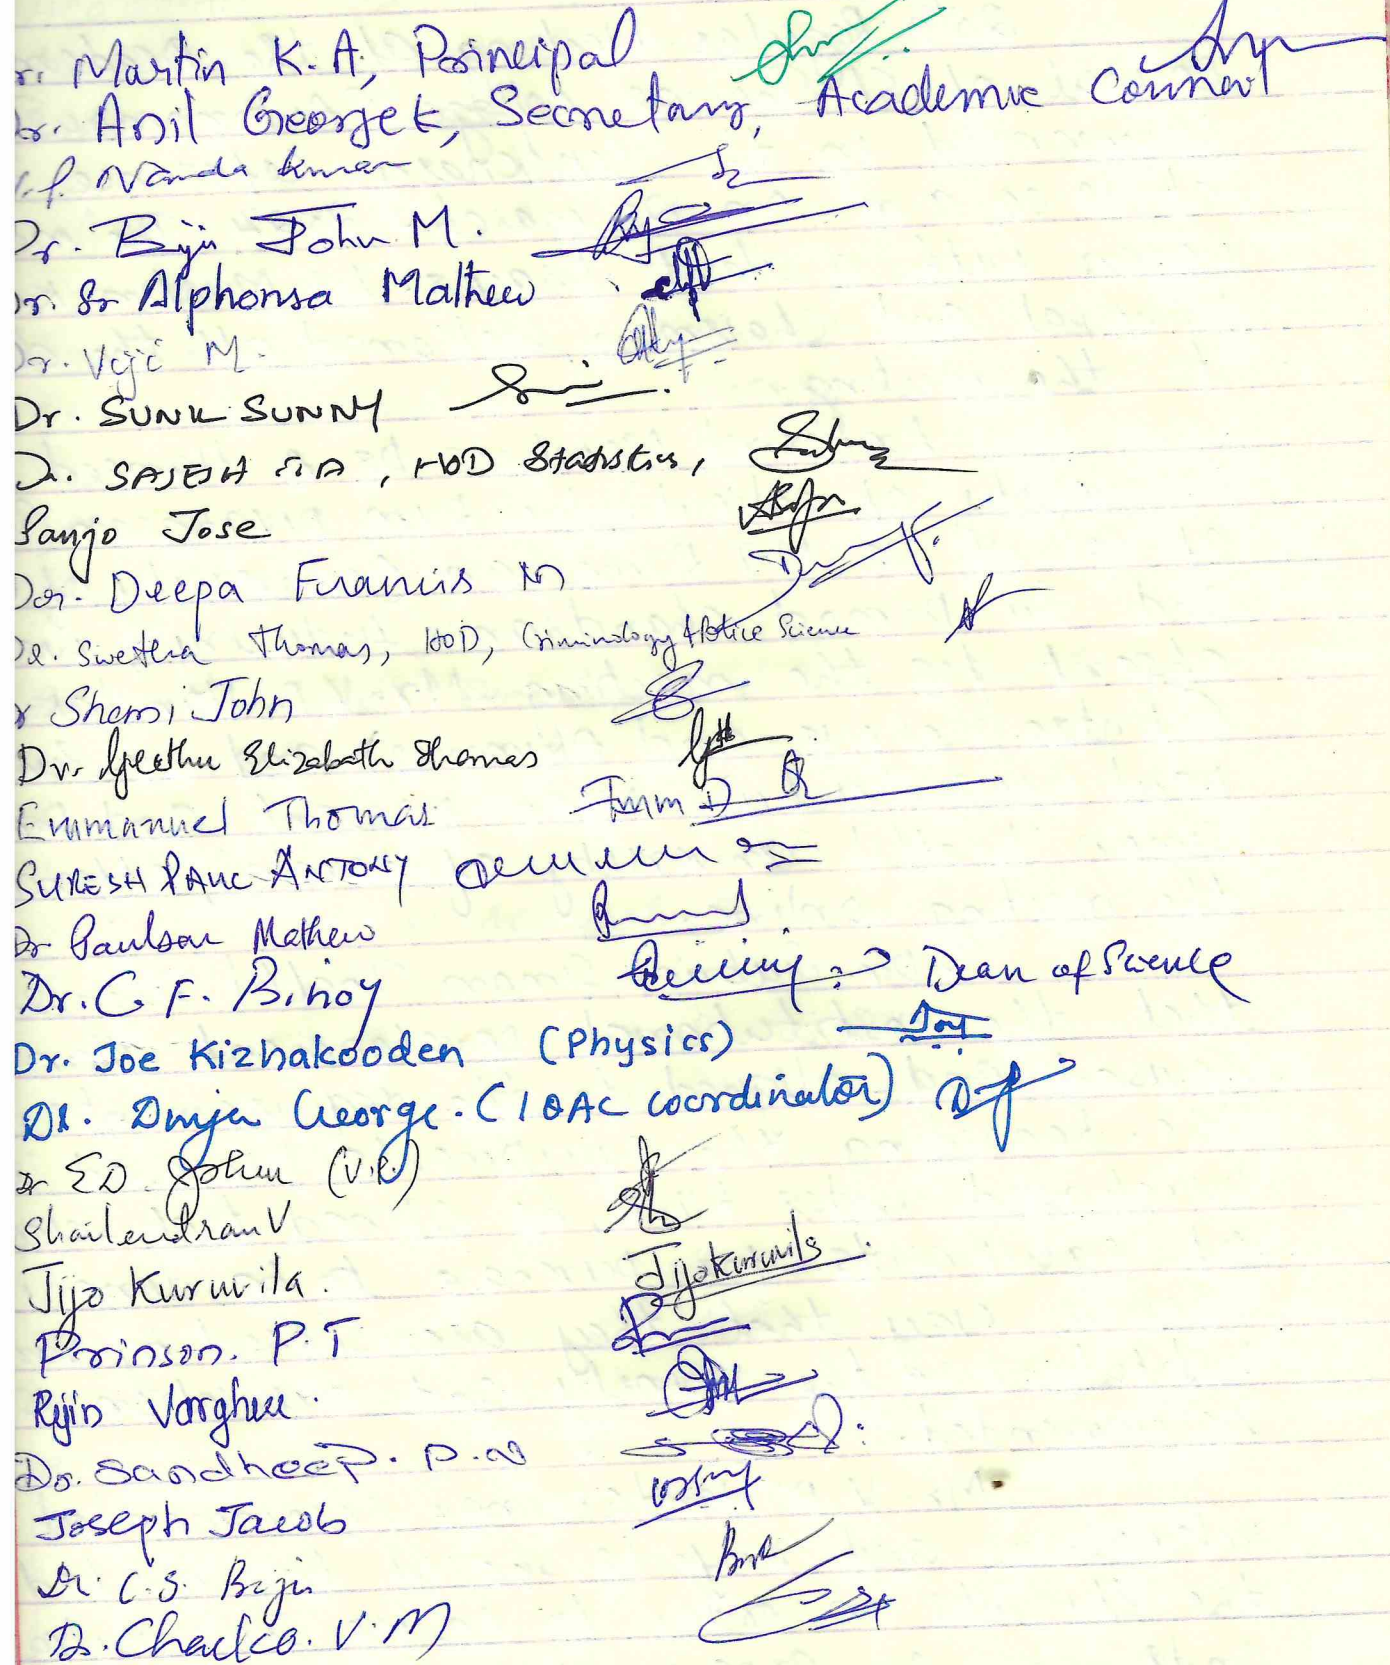 r. Martin K.A, Principal
Dr. Anil George k, Secretary, Academic Council
Nanda kumar
Dr. Biju John M.
Dr. Sr Alphonsa Mathew
Dr. Viji M.
Dr. SUNIL SUNNY
Dr. SAJESH T A, HOD Statistics,
Sanjo Jose
Dr. Deepa Francis M
Dr. Swetha Thomas, HOD, Criminology & Police Science
r Shemi John
Dr. Geethu Elizabath Thomas
Emmanuel Thomas
SURESH PAUL ANTONY
Dr Paulson Mathew
Dr. C F. Binoy Dean of Science
Dr. Joe Kizhakooden (Physics)
Dr. George. (IQAC coordinator)
Dr E D John (V.P.)
Shailendran V
Jijo Kuruvila. Jijo Kuruvila
Prinson. P.T
Rijin Varghese.
Dr. Sandheep. P.N
Joseph Jacob
Dr. C.S. Biju
Dr. Chacko. V.M